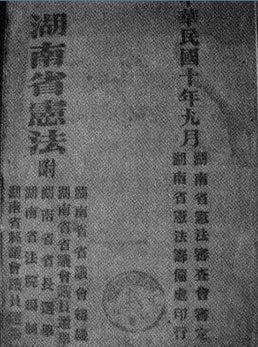 中華民國十年九月
湖南省憲法審查會審定
湖南省憲法籌備處印行
湖南省憲法
附
湖南省省議會組織
湖南省省議會議員選舉
湖南省省長選舉
湖南省法院編制
湖南省縣議會議員選舉